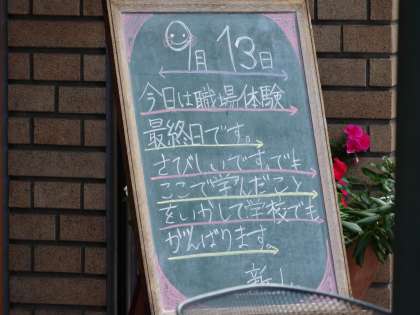 9月13日
今日は職場体験
最終日です。
さびしいですでも
ここで学んだこと
をいかして学校でも
がんばります。